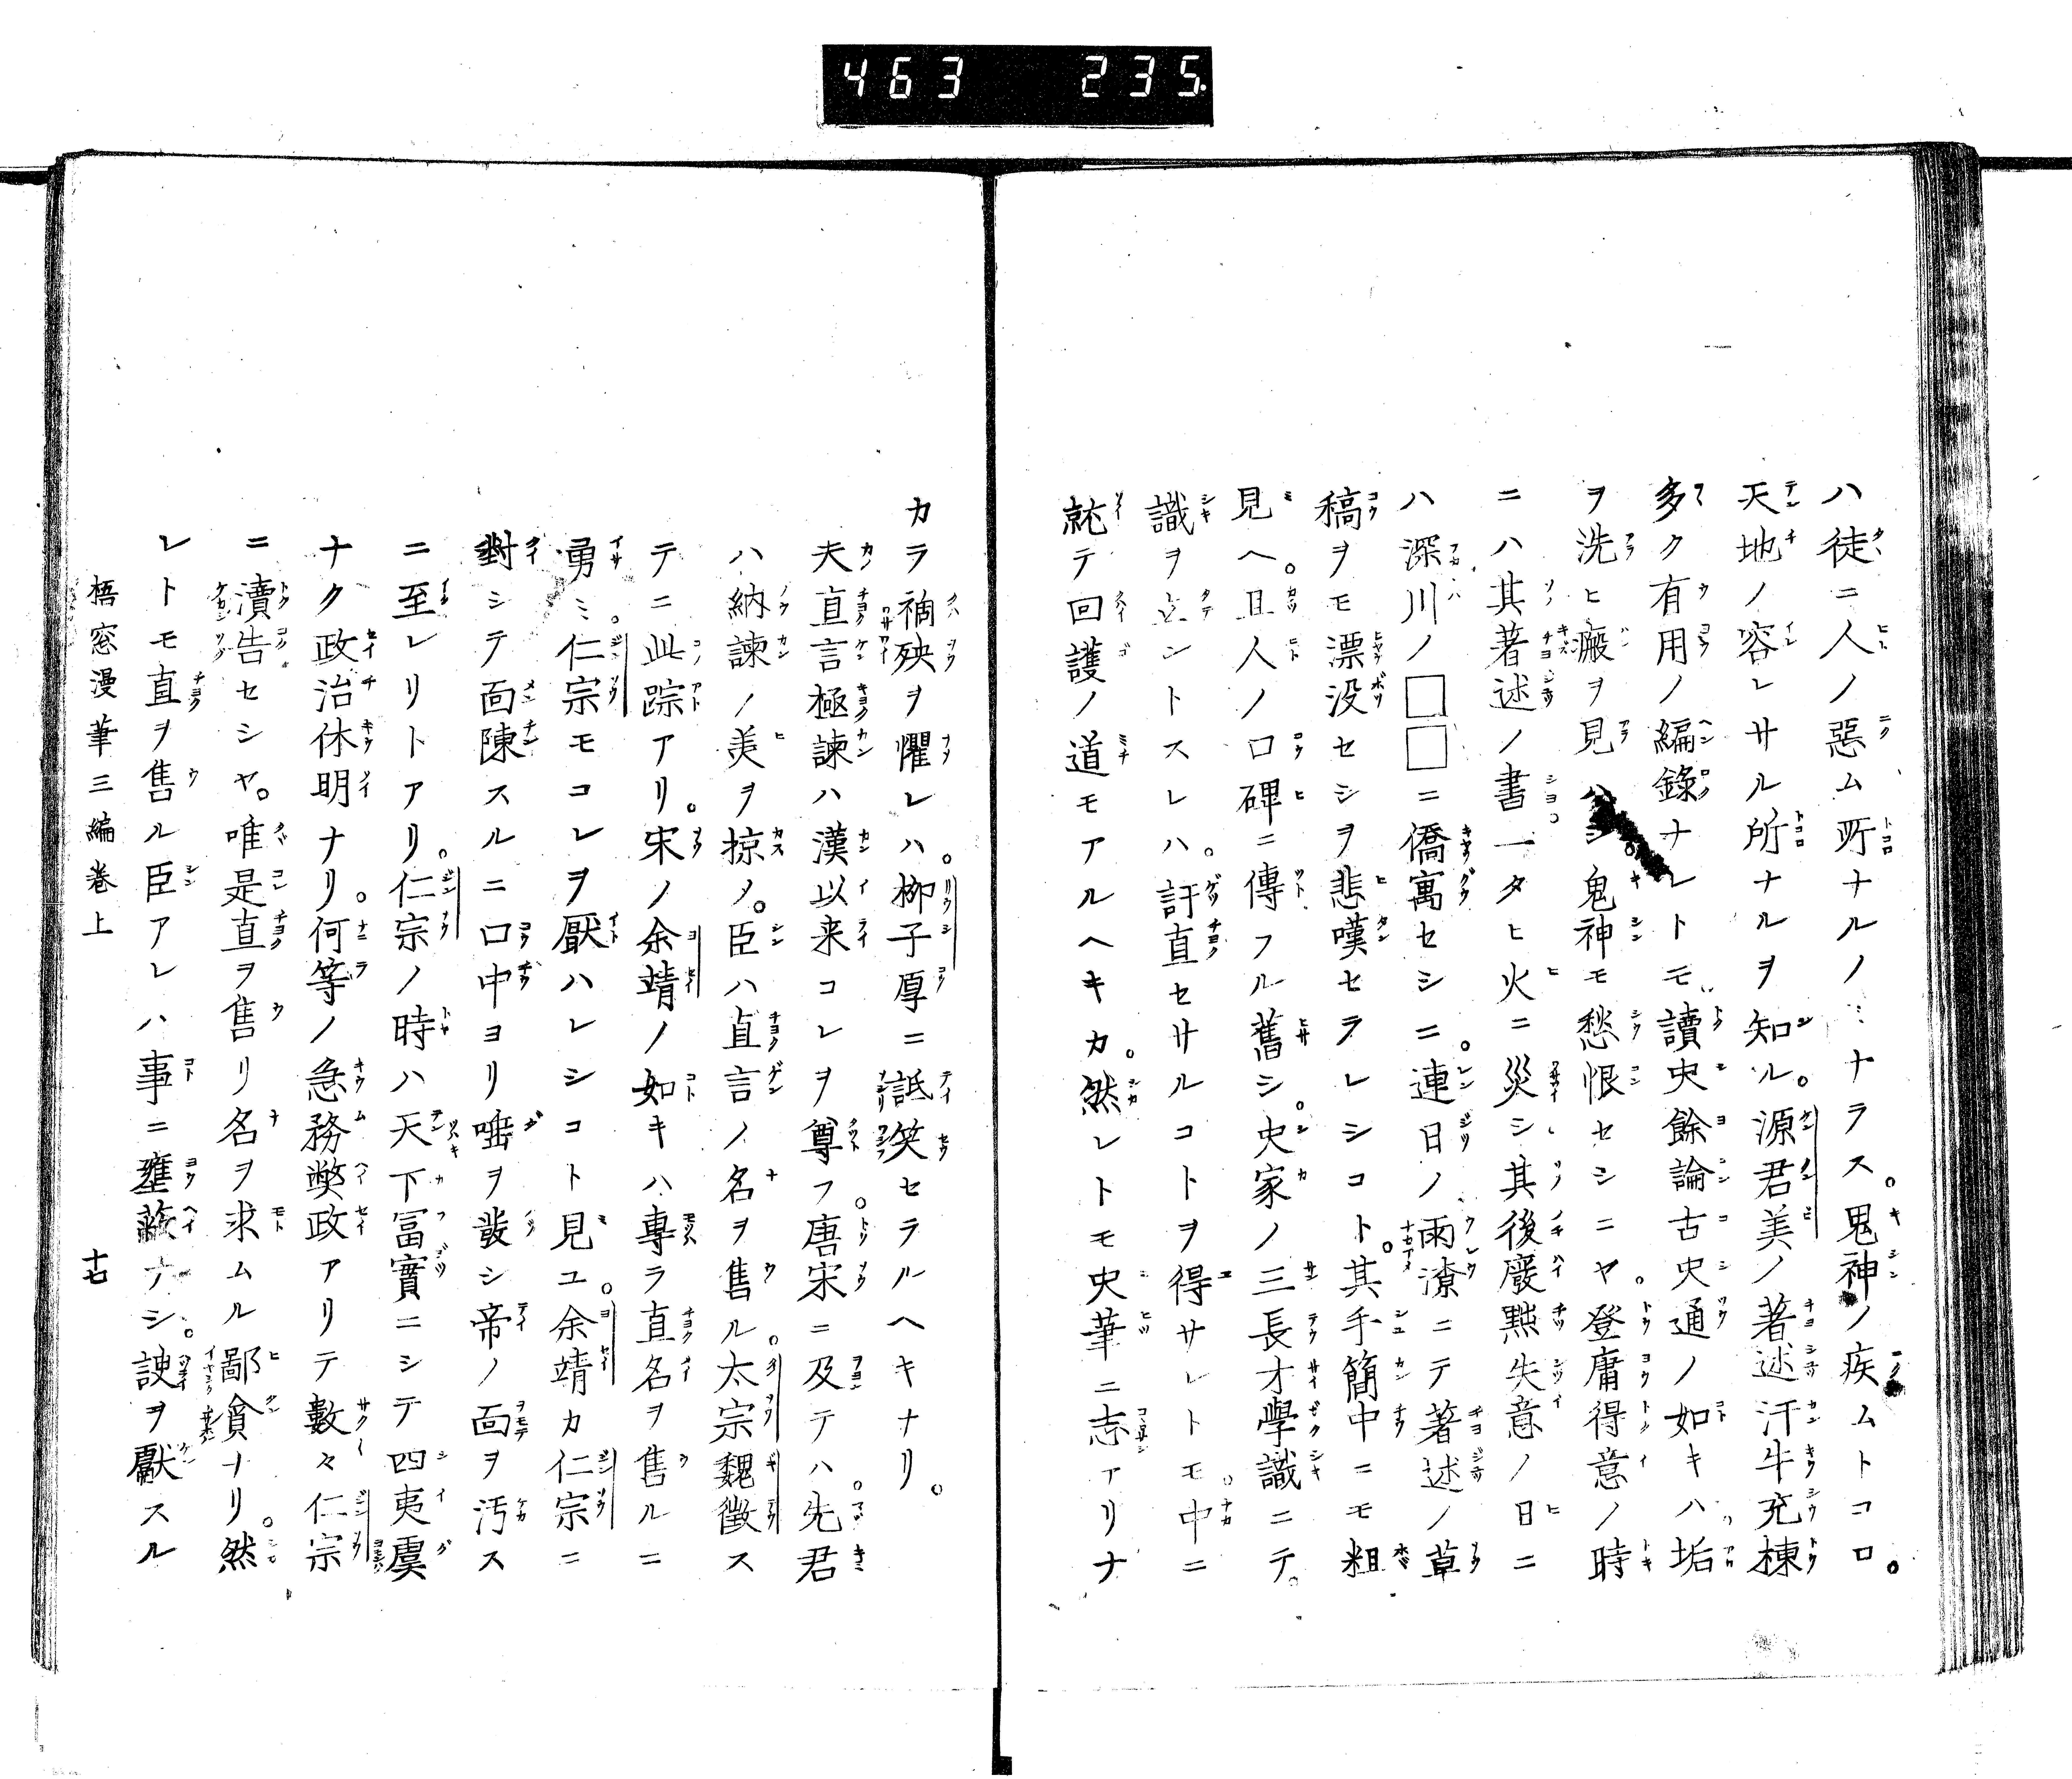 463 235.
ハ徒ニ人ノ惡ム所ナルノミナラス。鬼神ノ疾ムトコロ。
天地ノ容レサル所ナルヲ知ル。源君美ノ著述汗牛充棟
多ク有用ノ編錄ナレトモ讀史餘論古史通ノ如キハ垢
ヲ洗ヒ瘢ヲ見ハシ鬼神モ愁恨セシニヤ。登庸得意ノ時
ニハ其著述ノ書一タヒ火ニ災シ其後廢黜失意ノ日ニ
ハ深川ノ□□ニ僑寓セシニ。連日ノ雨潦ニテ著述ノ草
稿ヲモ漂沒セシヲ悲嘆セラレシコト。其手簡中ニモ粗
見ヘ。且人ノ口碑ニ傳フル舊シ。史家ノ三長才學識ニテ。
識ヲ立ントスレハ。訐直セサルコトヲ得サレトモ。中ニ
就テ回護ノ道モアルヘキカ。然レトモ史筆ニ志アリナ
カラ禍殃ヲ懼レハ。柳子厚ニ詆笑セラルヘキナリ。
夫直言極諫ハ漢以来コレヲ尊フ。唐宋ニ及テハ。先君
ハ納諫ノ美ヲ掠ノ。臣ハ直言ノ名ヲ售ル。太宗魏徵ス
テニ此踪アリ。宋ノ余靖ノ如キハ專ラ直名ヲ售ルニ
勇ミ。仁宗モコレヲ厭ハレシコト見ユ。余靖カ仁宗ニ
對シテ面陳スルニ口中ヨリ唾ヲ發シ帝ノ面ヲ汚ス
ニ至レリトアリ。仁宗ノ時ハ天下冨實ニシテ四夷虞
ナク政治休明ナリ。何等ノ急務獘政アリテ數々仁宗
ニ瀆告セシヤ。唯是直ヲ售リ名ヲ求ムル鄙貪ナリ。然
レトモ直ヲ售ル臣アレハ事ニ壅蔽ナシ。諛ヲ獻スル
梧窓漫筆三編巻上 十七